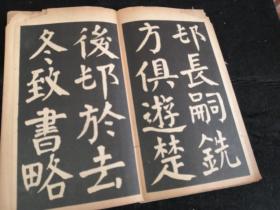 邙長嗣銑
方俱遊楚
後邙於去
冬致書略